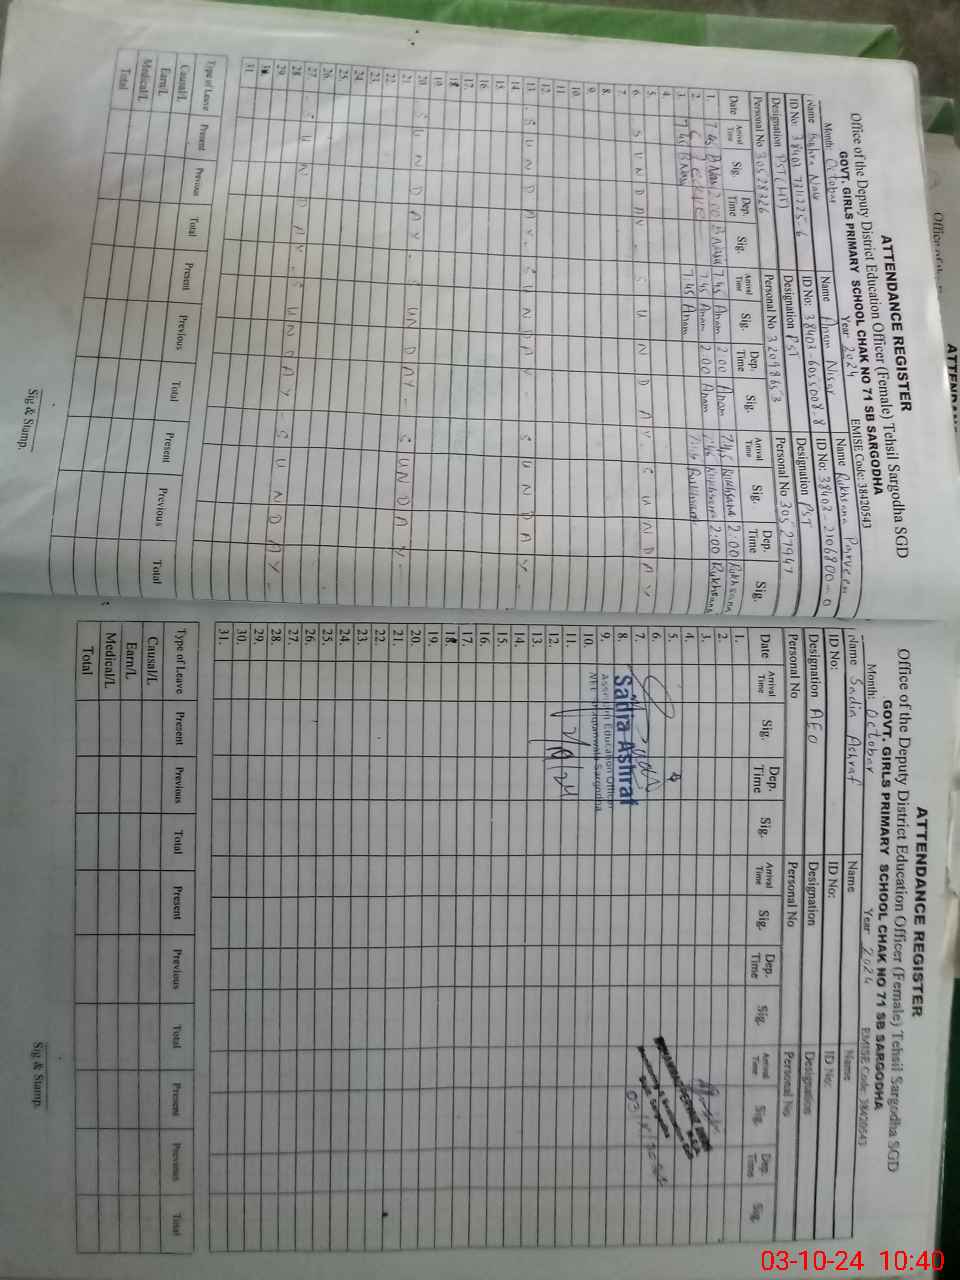 ATTENDANCE REGISTER
Office of the Deputy District Education Officer (Female) Tehsil Sargodha SGD
GOVT. GIRLS PRIMARY SCHOOL CHAK NO 71 SB SARGODHA
Month: October Year 2024 EMISE Code: 38420543
Name Name Anam Nisar Name Rukhsana Parveen
ID No: ID No: 38403-6055008-8 ID No: 38403-2106800-0
Designation PST Designation PST Designation PST
Personal No 30528326 Personal No 32098653 Personal No 30527947
Date Arrival Time Sig. Dep. Time Sig. Arrival Time Sig. Dep. Time Sig. Arrival Time Sig. Dep. Time Sig.
1. 7.45 2.00 7.45 Anam 2.00 Anam 7.45 Rukhsana 2:00 Rukhsana
2. 7.45 Anam 2.00 Anam 7.45 Rukhsana 2:00 Rukhsana
3. 7.45 7.45 Anam Rukhsana
4.
5.
6. SUNDAY - SUNDAY. SUNDAY
7.
8.
9.
10.
11.
12.
13. SUNDAY - SUNDAY - SUNDAY -
14.
15.
16.
17.
18.
19.
20. SUNDAY - SUNDAY - SUNDAY -
21.
22.
23.
24.
25.
26.
27. SUNDAY - SUNDAY - SUNDAY -
28.
29.
30.
31.
Type of Leave Present Previous Total Present Previous Total Present Previous Total
Causal/L
Earn/L
Medical/L
Total
Sig & Stamp.
ATTENDANCE REGISTER
Office of the Deputy District Education Officer (Female) Tehsil Sargodha SGD
GOVT. GIRLS PRIMARY SCHOOL CHAK NO 71 SB SARGODHA
Month: October Year 2024 EMISE Code: 38420543
Name Sadia Ashraf Name Name
ID No: ID No: ID No:
Designation AEO Designation Designation
Personal No Personal No Personal No
Date Arrival Time Sig. Dep. Time Sig. Arrival Time Sig. Dep. Time Sig. Arrival Time Sig. Dep. Time Sig.
1.
2.
3.
4.
5.
6.
7.
8. Sadia Ashraf
9. Assistant Education Officer
10. Sargodha
11. 2/10/24
12.
13.
14.
15.
16.
17.
18.
19.
20.
21.
22.
23.
24.
25.
26.
27.
28.
29.
30.
31.
Type of Leave Present Previous Total Present Previous Total Present Previous Total
Causal/L
Earn/L
Medical/L
Total
Sig & Stamp.
03-10-24 10:40